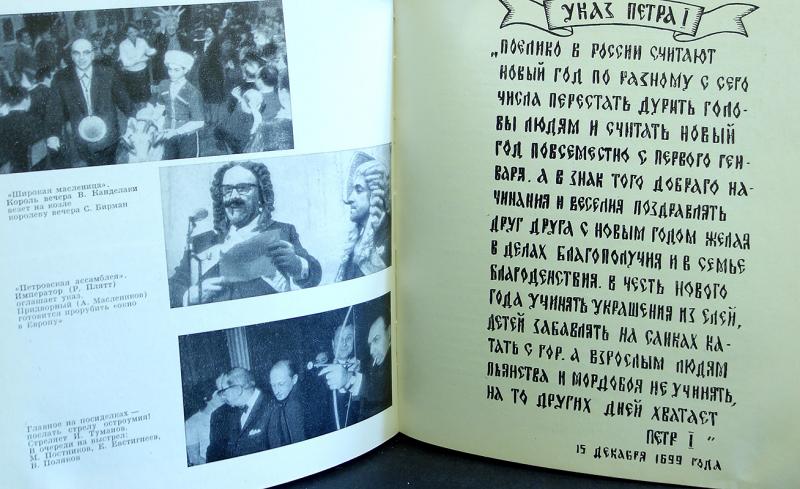 «Широкая масленица».
Король вечера В. Канделаки
везет на козле
королеву вечера С. Бирман
«Петровская ассамблея».
Император (Р. Плятт)
оглашает указ.
Придворный (А. Масленников)
готовится прорубить «окно
в Европу»
Главное на посиделках —
послать стрелу остроумия!
Стреляет И. Туманов.
В очереди на выстрел:
М. Постников, Е. Евстигнеев,
В. Поляков
УКАЗ ПЕТРА I
„ПОЕЛИКО В РОССИИ СЧИТАЮТ
НОВЫЙ ГОД ПО РАЗНОМУ С СЕГО
ЧИСЛА ПЕРЕСТАТЬ ДУРИТЬ ГОЛО-
ВЫ ЛЮДЯМ И СЧИТАТЬ НОВЫЙ
ГОД ПОВСЕМЕСТНО С ПЕРВОГО ГЕН-
ВАРЯ. А В ЗНАК ТОГО ДОБРАГО НА-
ЧИНАНИЯ И ВЕСЕЛИЯ ПОЗДРАВЛЯТЬ
ДРУГ ДРУГА С НОВЫМ ГОДОМ ЖЕЛАЯ
В ДЕЛАХ БЛАГОПОЛУЧИЯ И В СЕМЬЕ
БЛАГОДЕНСТВИЯ. В ЧЕСТЬ НОВОГО
ГОДА УЧИНЯТЬ УКРАШЕНИЯ ИЗ ЕЛЕЙ,
ДЕТЕЙ ЗАБАВЛЯТЬ НА САНКАХ КА-
ТАТЬ С ГОР. А ВЗРОСЛЫМ ЛЮДЯМ
ПЬЯНСТВА И МОРДОБОЯ НЕ УЧИНЯТЬ,
НА ТО ДРУГИХ ДНЕЙ ХВАТАЕТ
ПЕТР I "
15 ДЕКАБРЯ 1699 ГОДА